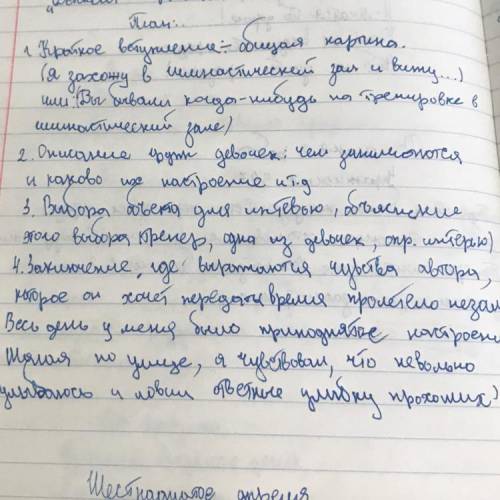 План:
1. Краткое вступление - общая картина.
(Я захожу в гимнастический зал и вижу...)
или: (Вы бывали когда-нибудь на тренировке в
гимнастический зале)
2. Описание групп девочек: чем занимаются
и каково их настроение и т.д
3. Выбора объекта для интервью, объяснение
этого выбора (тренер, одна из девочек, опр. интервью)
4. Заключение, где выражаются чувства автора,
которое он хочет передать (время пролетело незам
Весь день у меня было приподнятое настроени
Шагая по улице, я чувствовал, что невольно
улыбаюсь и ловил ответные улыбку прохожих)
Шестнадцатое апреля